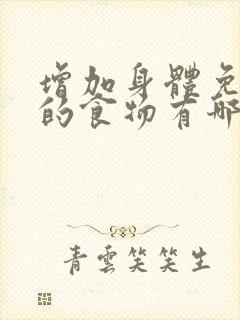 增加身體免
的食物有哪
青雲笑笑生